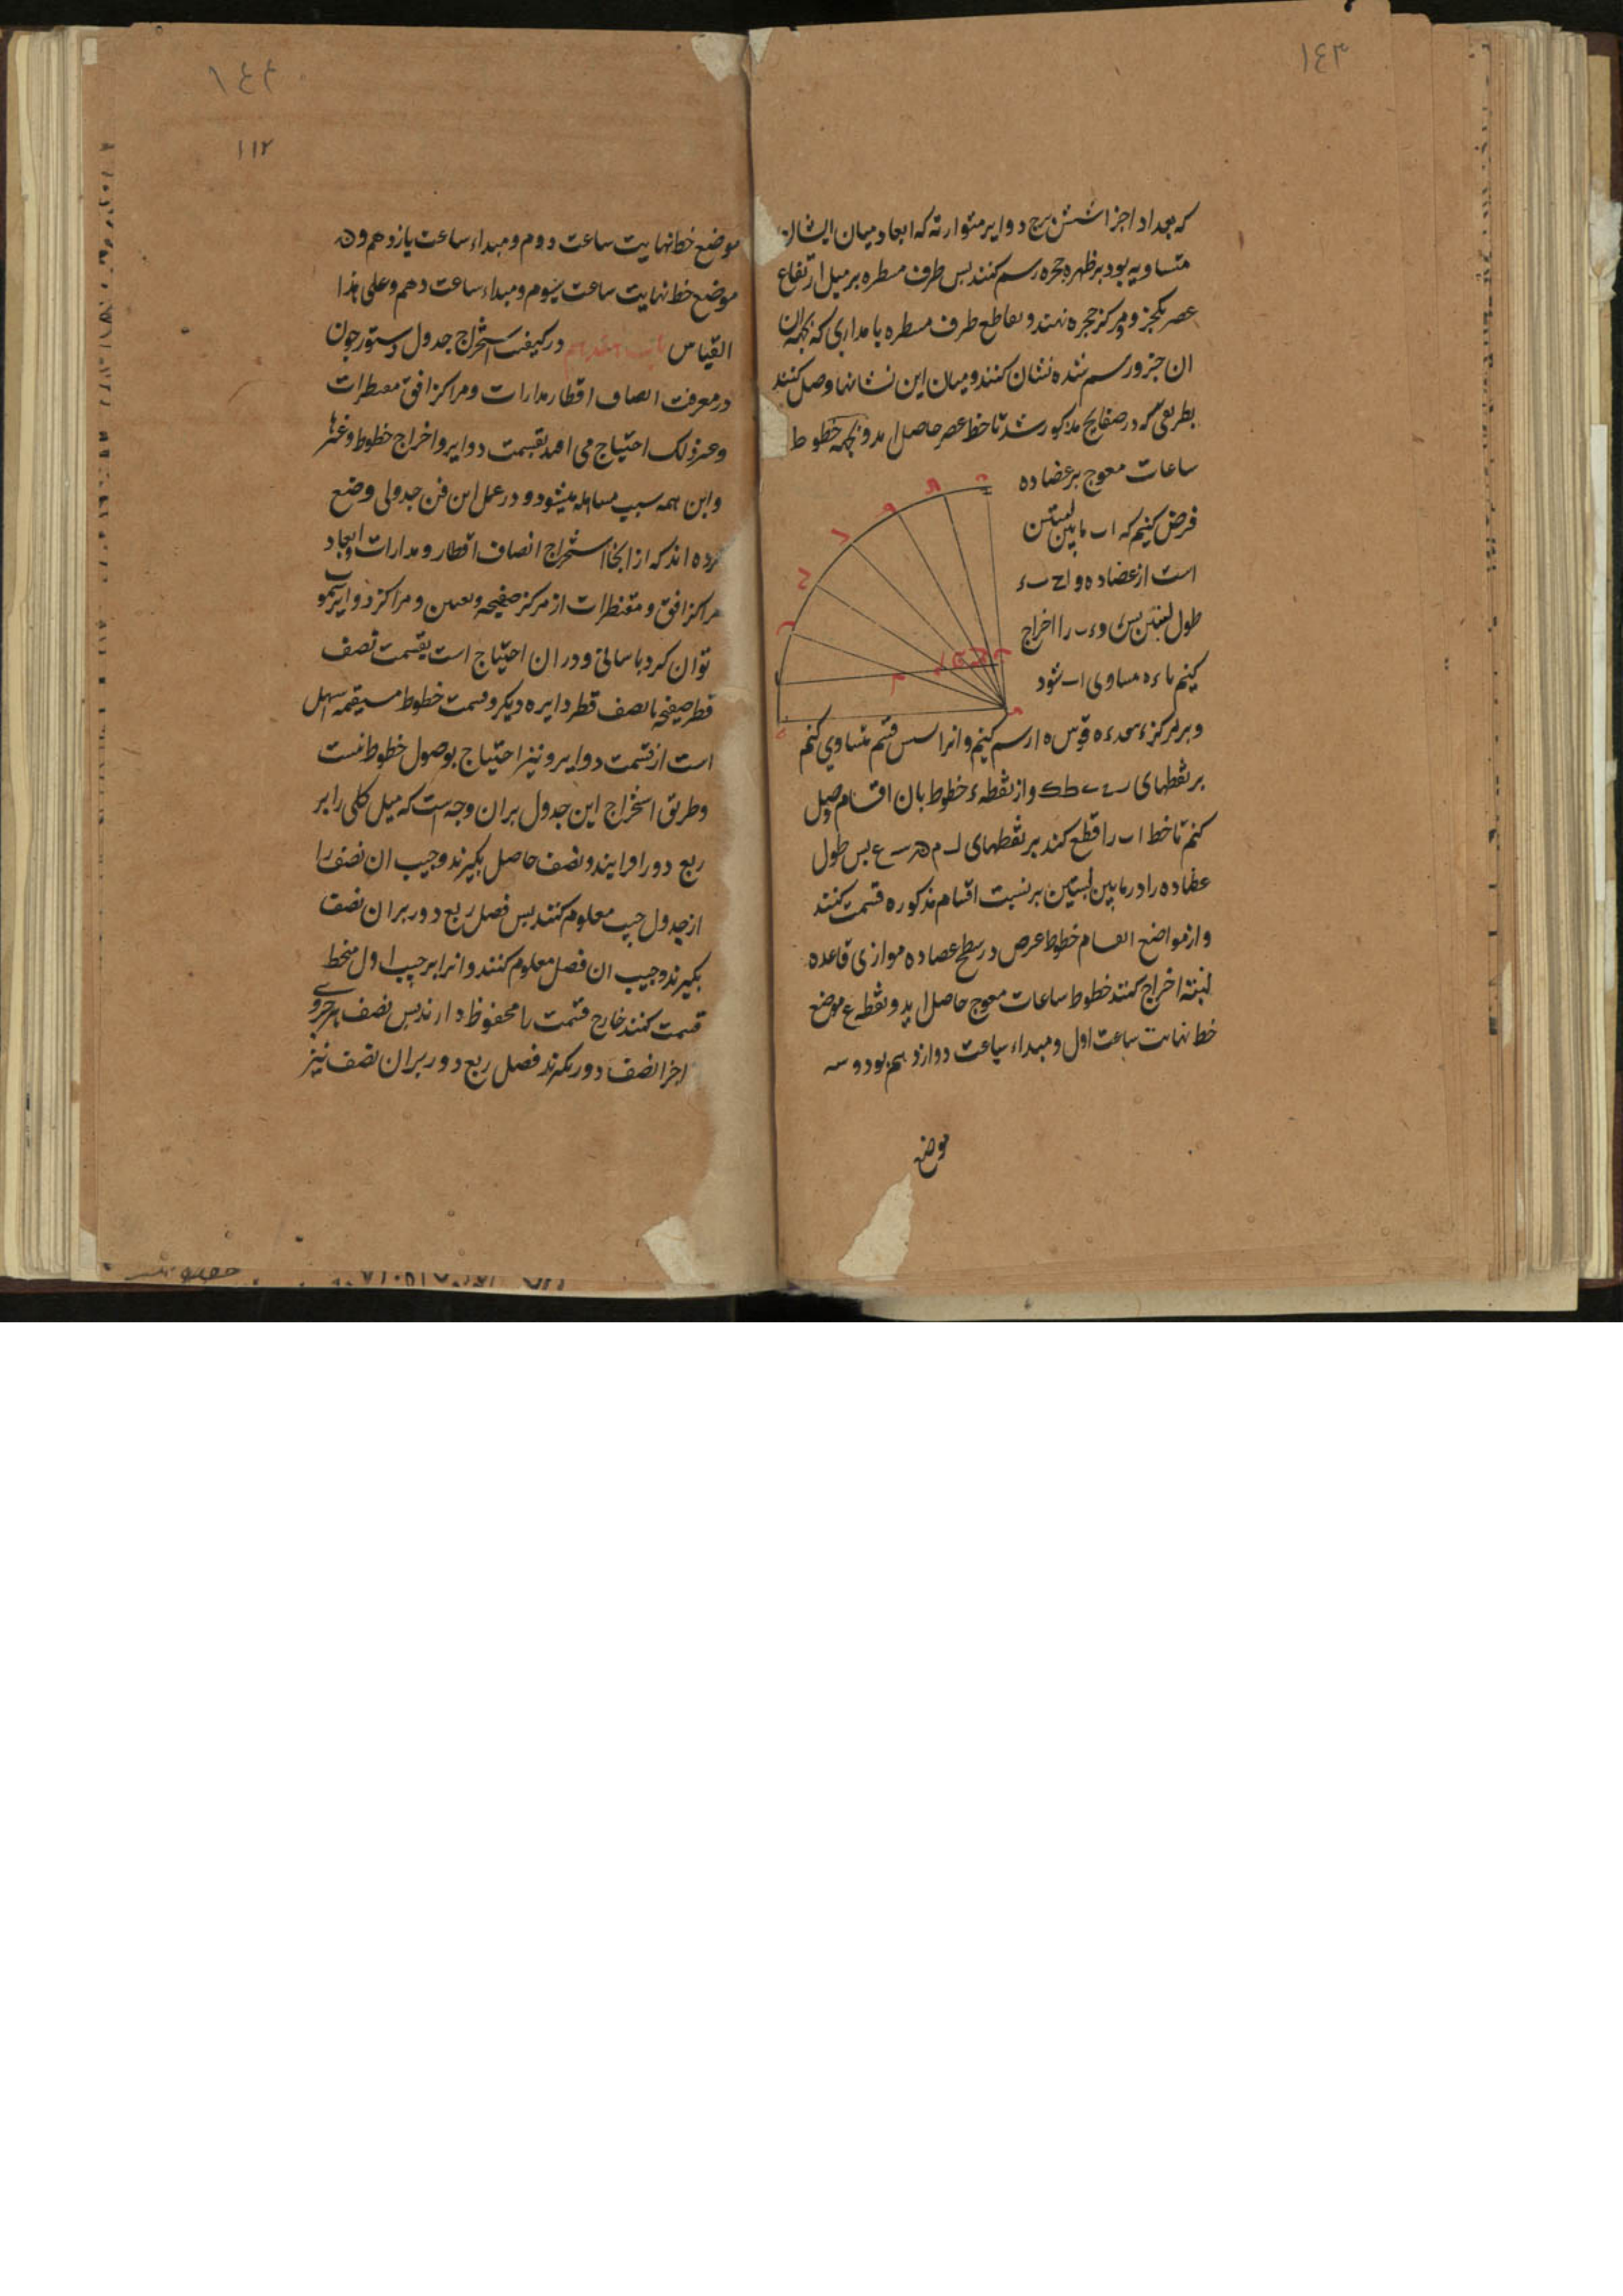 ١٤٣
که بعداد اجزا شش برج دوایر متوازیه که ابعاد میان ایشان
متساویه بود بر ظهر حجره رسم کنند بس طرف مسطره بر میل ارتفاع
عصر یکجز و مرکز حجره نهند و تقاطع طرف مسطره با مداری که بجهة ان
ان جزو رسم شده نشان کنند و میان این نشانها وصل کنند
بطریقی که در صفایح مذکور شد تا خط عصر حاصل اید و بجهة خطوط
ساعات معوج بر عضاده
فرض کنیم که اب مابین لبنتین
است از عضاده و اح ب ء
طول لبنتین بس و ء ب را اخراج
کنیم تا ء ه مساوی اب شود
و بر مرکز ء ببعد ء ه قوس ه ا رسم کنیم و انرا بشش قسم متساوی کنیم
بر نقطهای ر ح ط ک و از نقطه ء خطوط بان اقسام وصل
کنیم تا خط اب را قطع کند بر نقطهای ل م ن س ع بس طول
عضاده را در مابین لبنتین بر نسبت اقسام مذکوره قسمت کنند
و از مواضع انقسام خطوط عرض در سطح عضاده موازی قاعده
لبنة اخراج کنند خطوط ساعات معوج حاصل اید و نقطه ع موضع
خط نهایت ساعت اول و مبداء ساعت دوازدهم بود و س
موضع
١٤٤
١١٢
موضع خط نهایت ساعت دوم و مبداء ساعت یازدهم و ن
موضع خط نهایت ساعت سوم و مبداء ساعت دهم و علی هذا
القیاس باب هفدهم در کیفیت استخراج جدول دستور جون
در معرفت انصاف اقطار مدارات و مراکز افق مقنطرات
و غیر ذلک احتیاج می افتد بقسمت دوایر و اخراج خطوط و غیرها
و این همه سبب مساهله میشود و در عمل این فن جدولی وضع
کرده اند که از انجا استخراج انصاف اقطار و مدارات و ابعاد
مراکز افق و مقنطرات از مرکز صفیحه و تعیین و مراکز دوایر سموت
توان کرد باسانی و در ان احتیاج است بقسمت نصف
قطر صفیحه یا نصف قطر دایره دیکر و قسمت خطوط مستقیمه اسهل
است از قسمت دوایر و نیز احتیاج بوصول خطوط نیست
و طریق استخراج این جدول بران وجه است که میل کلی را بر
ربع دور افزایند و نصف حاصل بکیرند و جیب ان نصف را
از جدول جیب معلوم کنند بس فصل ربع دور بران نصف
بکیرند و جیب ان فصل معلوم کنند و انرا بر جیب اول منحط
قسمت کنند خارج قسمت را محفوظ دارند بس نصف هر جزوی
اجزا نصف دور بکیرند فصل ربع دور بران نصف نیز